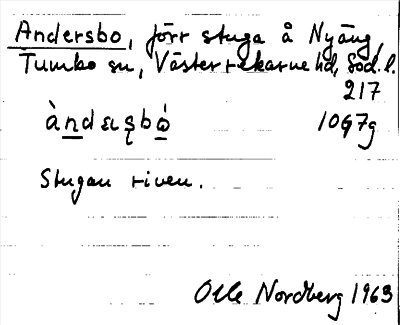 Andersbo, förr stuga å Nyäng,
Tumbo sn, Västerrekarne hd, Söd. l.
217
10G7g
Stugan riven.
Olle Nordberg 1963